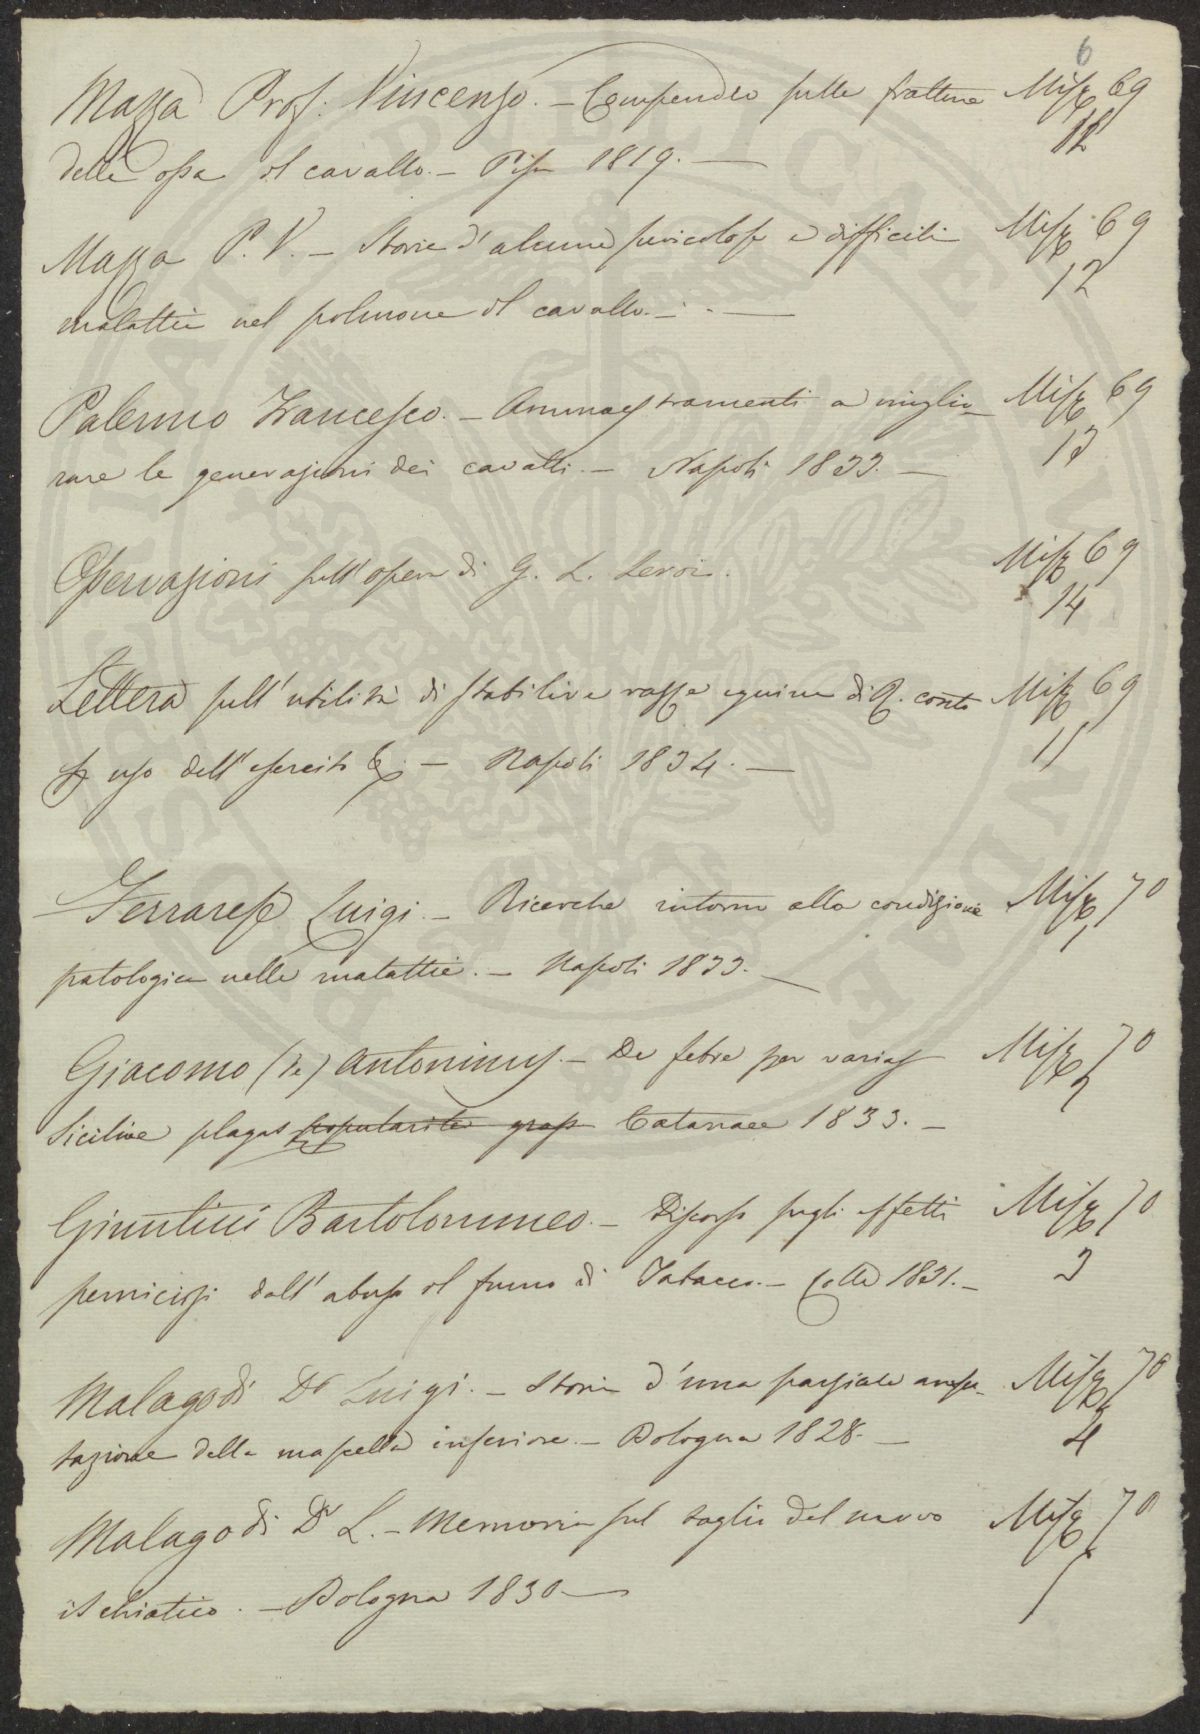 6
Mazza Prof. Vincenzo. - Compendio sulle fratture Misc 69
delle ossa del cavallo. - Pisa 1819. - 12
Mazza P. V. - Storie d'alcune pericolose e difficili Misc 69
malattie nel polmone del cavallo. - 12
Palermo Francesco. - Ammaestramenti a miglio- Misc 69
rare le generazioni dei cavalli. - Napoli 1833. - 13
Osservazioni sull'opera di G. L. Leroi. Misc 69
14
Lettera sull'utilità di stabilire razze equine di R. conto Misc 69
uso dell'esercito &. - Napoli 1834. - 15
Ferrarese Luigi. - Ricerche intorno alla condizione Misc 70
patologica nelle malattie. - Napoli 1833. - 1
Giacomo (de) Antoninus. - De febre per varias Misc 70
Siciliae plagas popularite grass Catanae 1833. - 2
Giuntini Bartolommeo. - Discorso sugli effetti Misc 70
perniciosi dell'abuso del fumo di Tabacco. - Colle 1831. - 3
Malagodi Dr Luigi. - Storia d'una parziale ampu- Misc 70
tazione della mascella inferiore. - Bologna 1828. - 4
Malagodi Dr L. - Memoria sul taglio del nervo Misc 70
ischiatico. - Bologna 1830 - 5